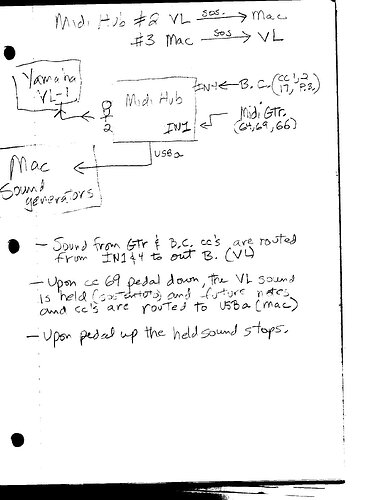 Midi Hub #2 VL sos. → Mac
#3 Mac sos → VL
Yamaha
VL-1
Midi Hub
IN4 ← B.C. (cc's, 2
17, P.B.)
IN1
Midi Gtr.
(64, 69, 66)
2
USBa
Mac
Sound
generators
— Sound from Gtr & B.C. cc's are routed
from IN1&4 to out B. (VL)
— Upon cc 69 pedal down, the VL sound
is held (sostenuto) and future notes
and cc's are routed to USBa (Mac)
— Upon pedal up the held sound stops.